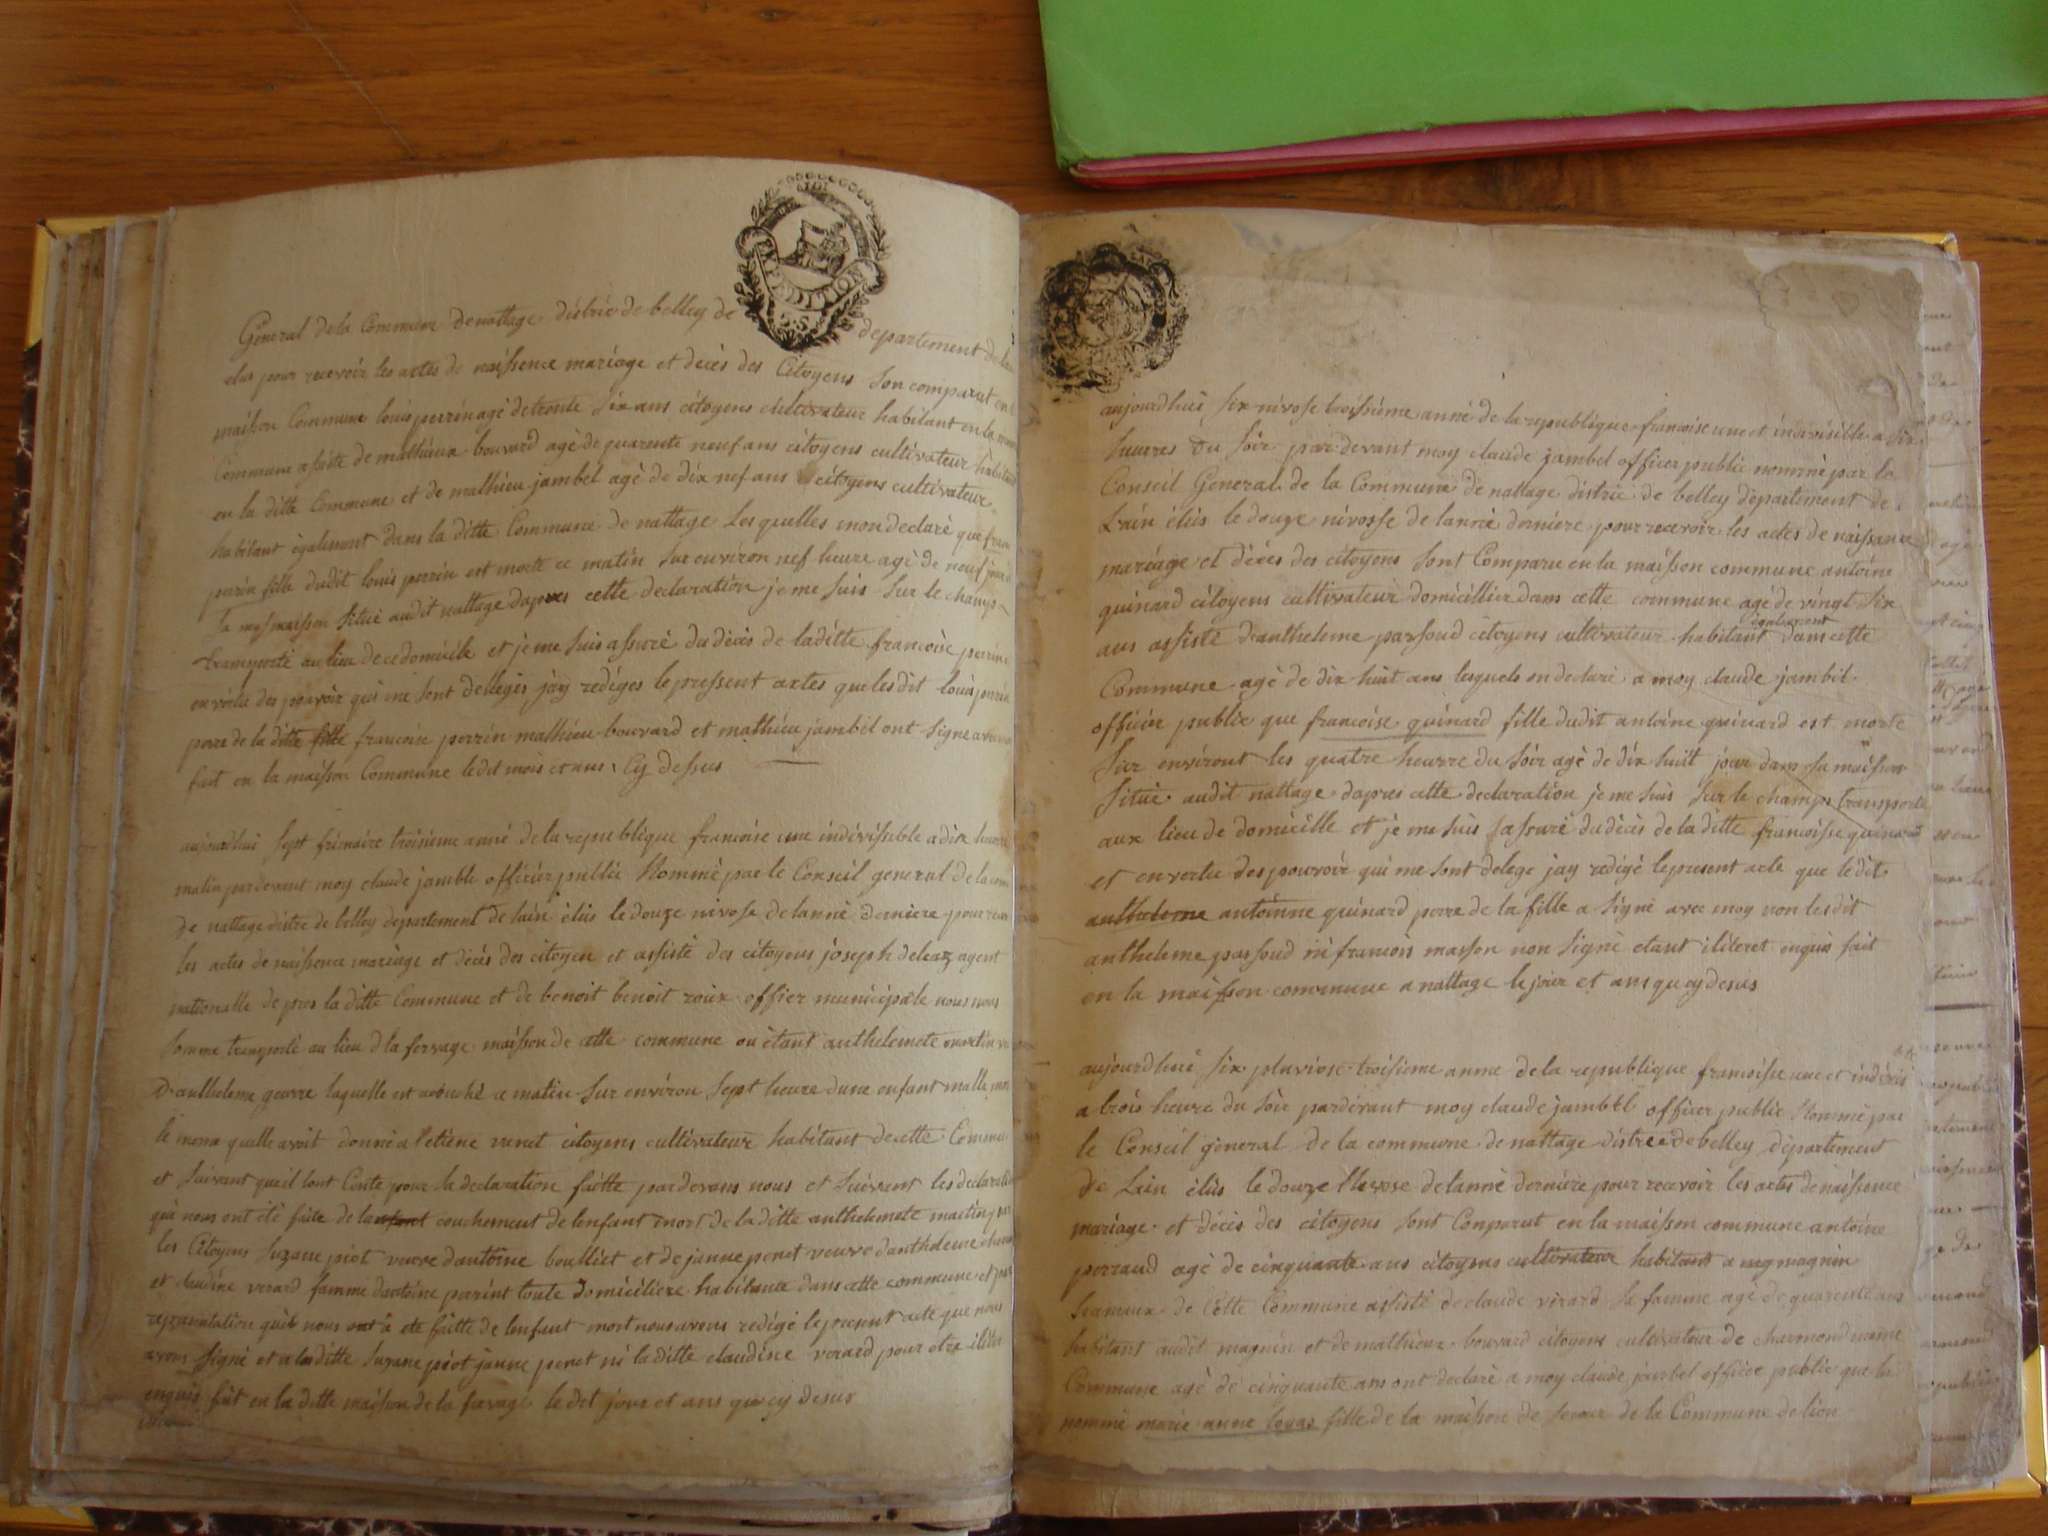 General de la Commune de nattage district de belley de departement de
elus pour recevoir les actes de naissence mariage et decès des Citoyens son comparut en
maison Commune louis perrin agé de trente six ans citoyens cultivateur habitant en la
Commune assiste de mathieux bouvard agé de quarente neuf ans citoyens cultivateur habitant
en la ditte Commune et de mathieu jambel agé de dix nef ans citoyens cultivateur
habitant egalement dans la ditte Commune de nattage Lesquelles mon declaré que
perin fille dudit louis perrin est morte ce matin sur environ nef heure agé de neuf
maison situé audit nattage dapres cette declaration je me suis sur le champs
transporté au lieu de ce domicile et je me suis assuré du décès de laditte francoise perrin
en vertu des pouvoir qui me sont delleges jay redigés le pressent actes que lesdit louis perrin
pere de la ditte fille francoise perrin mathieu bouvard et mathieu jambel ont signe avec
fait en la maison Commune ledit mois et ans Cy dessus
aujourdhui sept frimaire troisieme anné de la republique francoise une indévissible a dix heure
matin pardevant moy claude jamble officier public Nommé par le Conseil general de la
de nattage distre de belley departement de lain élus le douze nivose de lanné derniere pour
les actes de naissence mariage et décès des citoyen et assisté des citoyens joseph deleaz agent
nationalle de pres la ditte Commune et de benoit benoit roux offier municipale nous nous
somme transporté au lieu d la fervage maisson de cette commune ou étant anthelemete martin
Danthelme laquelle est acouché ce matin sur environ sept heure dune enfant malle
le mena quelle avoit donné a letiene venet citoyens cultivateur habitant decette
et suivant quail lont Conte pour la declaration faitte pardevans nous et suivent les declaration
qui nous ont été faite de lenfant couchement de lenfant mort de la ditte anthelemete martin
les Citoyens suzane piot veuve dantoine boulliet et de janne penet veuve danthelme
et claudine verard famme dantoine perint toute domicilière habitante dans cette commune et
representation quil nous ont a été faitte de lenfant mort nous avons redigé le present acte que nous
avons signé et a la ditte suzane piot janne penet ni la ditte claudine verard pour etre
enquis fait en la ditte maisson de la fervage le dit jour et ans que cy desus
aujourdhui six nivosse troissieme anné de la republique francoise une et indivisible a six
heures du soir par devant moy claude jambel officier public nommé par le
Conseil General de la Commune de nattage distric de belley departement de
Lain élus le douze nivosse de lanné derniere pour recevoir les actes de naissance
mariage et décès des citoyens sont Comparu en la maisson commune antoine
quinard citoyens cultivateur domicillier dans cette commune agé de vingt six
egalement
ans assisté danthelme parsoud citoyens cultivateur habitant dans cette
Commune agé de dix huit ans lesquels on declaré a moy claude jambel
officier public que francoise quinard fille dudit antoine quinard est morte
sur environt les quatre heurre du soir agé de dix huit jour dans sa maisson
situé audit nattage dapres cette declaration je me suis sur le champs transporté
aux lieu de domicille et je me suis sassuré du décès de la ditte francoisse quinard
et en vertu des pouvoir qui me sont delege jay redigé le present acte que ledit
antheleme antoinne quinard pere de la fille a signé avec moy non lesdit
antheleme parsoud ni francois masson non signé etant iliteret enquis fait
en la maisson commune a nattage le jour et ans que cy desus
aujourdhui six pluviose troisieme anne de la republique francoisse une et indévis
a trois heure du soir pardevant moy claude jambel officier public Nommé par
le Conseil général de la commune de nattage distrec de belley departement
de Lain élus le douze Nivose de lanné derniere pour recevoir les actes de naissence
mariage et décès des citoyens sont Conparut en la maisson commune antoine
perraud agé de cinquante ans citoyens cultivateur habitant a magnin
hameaux de Cette Commune assisté de claude virard sa famme agé de quarente ans
habitant audit magnin et de mathieux bouvard citoyens cultivateur de charmond meme
Commune agé de cinquante ans ont declaré a moy claude jambel officier public que la
nommé marie anne fille de la maisson de secour de la Commune de lion